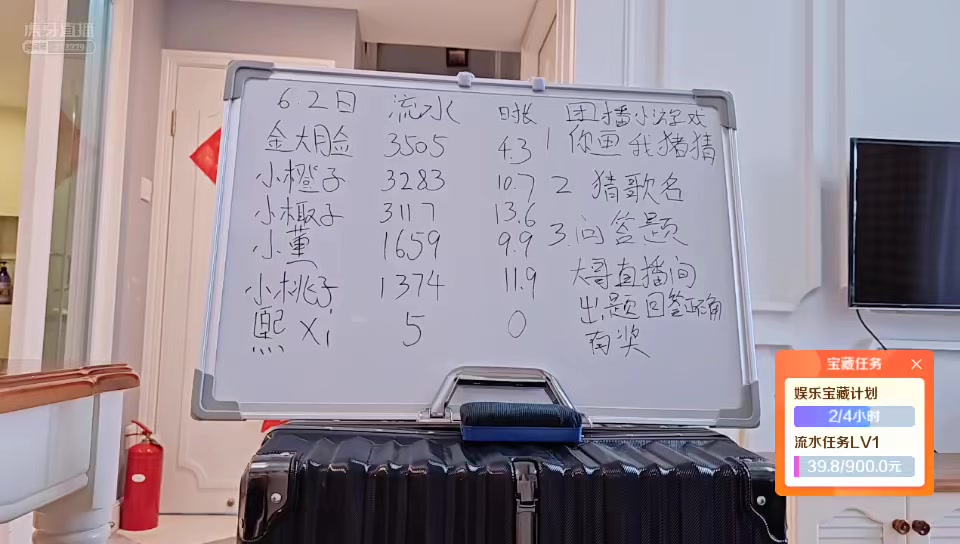 虎牙直播
6.2日 流水 时长
金大脸 3505 4.3
小橙子 3283 10.7
小椒子 3117 13.6
小薰 1659 9.9
小桃子 1374 11.9
熙xi 5 0
团播小游戏
1 你画我猪猜
2 猜歌名
3.问答题
大哥直播间
出题回答正确
有奖
宝藏任务
娱乐宝藏计划
2/4小时
流水任务LV1
39.8/900.0元